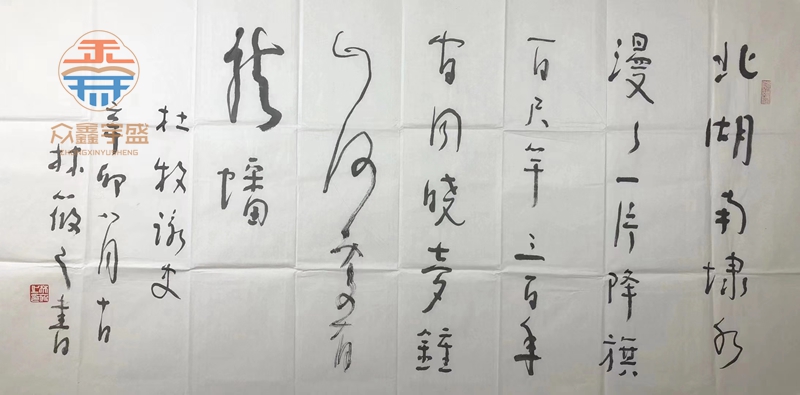 北湖南埭水
漫々一片降旗
百尺竿三百年
间同晓梦鐘
山何处有
龙蟠
杜牧詠史
辛卯八月
林筱之書
众鑫宇盛
ZHONGXINYUSHENG